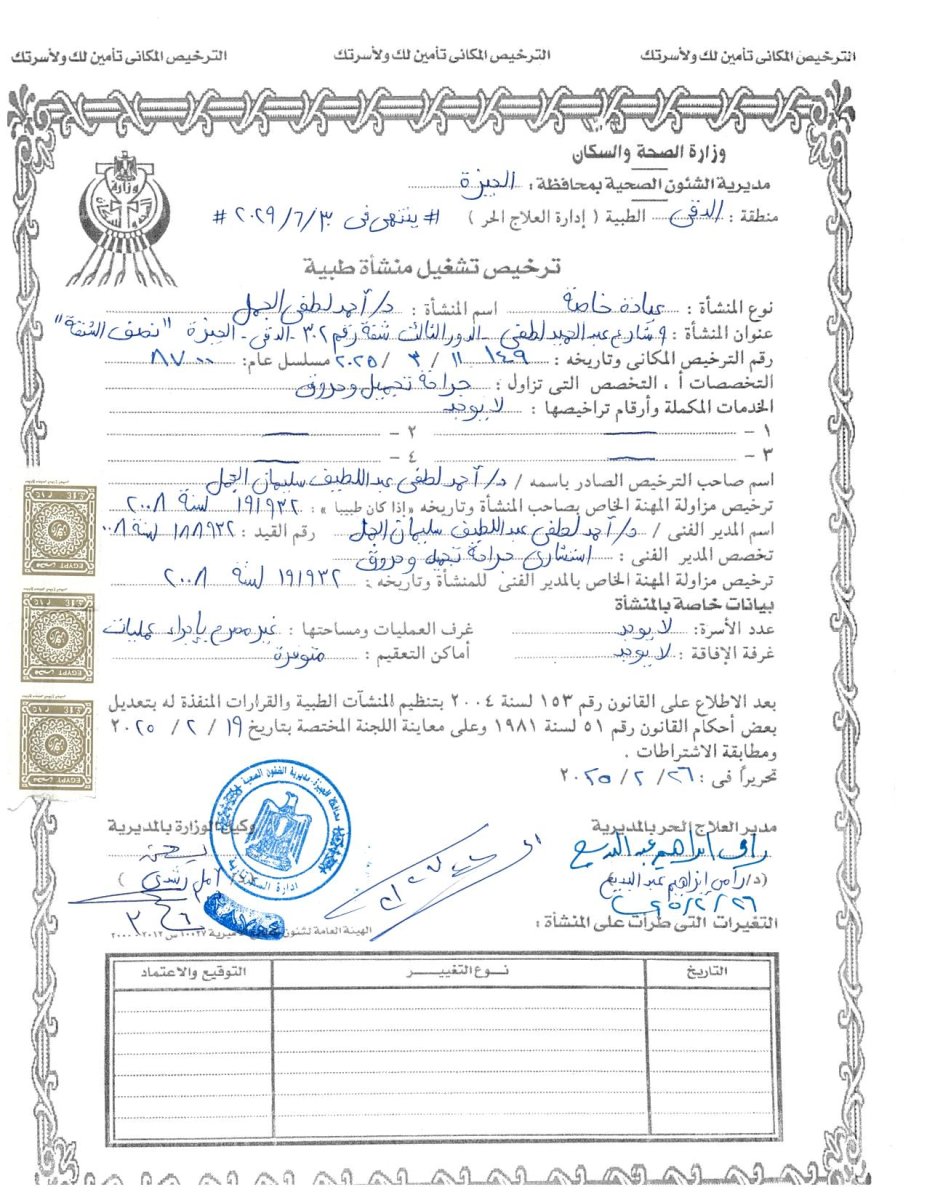 الترخيص المكانى تأمين لك ولأسرتك الترخيص المكانى تأمين لك ولأسرتك الترخيص المكانى تأمين لك ولأسرتك
وزارة الصحة والسكان
مديرية الشئون الصحية بمحافظة : الجيزة
منطقة : الدقى الطبية ( إدارة العلاج الحر ) # ينتهى فى ٢٠٢٩/٦/٣٠ #
ترخيص تشغيل منشأة طبية
نوع المنشأة : عيادة خاصة اسم المنشأة : د/ أحمد لطفى الجمل
عنوان المنشأة : ٩ شارع عبد الحميد لطفى - الدور الثالث شقة رقم ٣٠٢ - الدقى - الجيزة "نصف الشقة"
رقم الترخيص المكانى وتاريخه : ١٤٠٩ ١١ / ٣ / ٢٠٢٥ مسلسل عام : ٨٧٠٠٠
التخصصات أ ، التخصص التى تزاول : جراحة تجميل وحروق
الخدمات المكملة وأرقام تراخيصها : لا يوجد
١ - ٢ -
٣ - ٤ -
اسم صاحب الترخيص الصادر باسمه / د/ أحمد لطفى عبداللطيف سليمان الجمل
ترخيص مزاولة المهنة الخاص بصاحب المنشأة وتاريخه «إذا كان طبيبا» : ١٩١٩٣٢ لسنة ٢٠٠٨
اسم المدير الفنى / د/ أحمد لطفى عبداللطيف سليمان الجمل رقم القيد : ١٨٨٩٣٢ لسنة ٢٠٠٨
تخصص المدير الفنى : استشارى جراحة تجميل وحروق
ترخيص مزاولة المهنة الخاص بالمدير الفنى للمنشأة وتاريخه : ١٩١٩٣٢ لسنة ٢٠٠٨
بيانات خاصة بالمنشأة
عدد الأسرة : لا يوجد غرف العمليات ومساحتها : غير مصرح بإجراء عمليات
غرفة الإفاقة : لا يوجد أماكن التعقيم : متوفرة
بعد الاطلاع على القانون رقم ١٥٣ لسنة ٢٠٠٤ بتنظيم المنشآت الطبية والقرارات المنفذة له بتعديل
بعض أحكام القانون رقم ٥١ لسنة ١٩٨١ وعلى معاينة اللجنة المختصة بتاريخ ١٩ / ٢ / ٢٠٢٥
ومطابقة الاشتراطات .
تحريراً فى : ٢٦ / ٢ / ٢٠٢٥
مدير العلاج الحر بالمديرية وكيل الوزارة بالمديرية
رامى ابراهيم عبد البديع
(د/ رامى ابراهيم عبد البديع)
آمال رشدى )
التغيرات التى طرأت على المنشأة :
التاريخ نــوع التغييـــر التوقيع والاعتماد